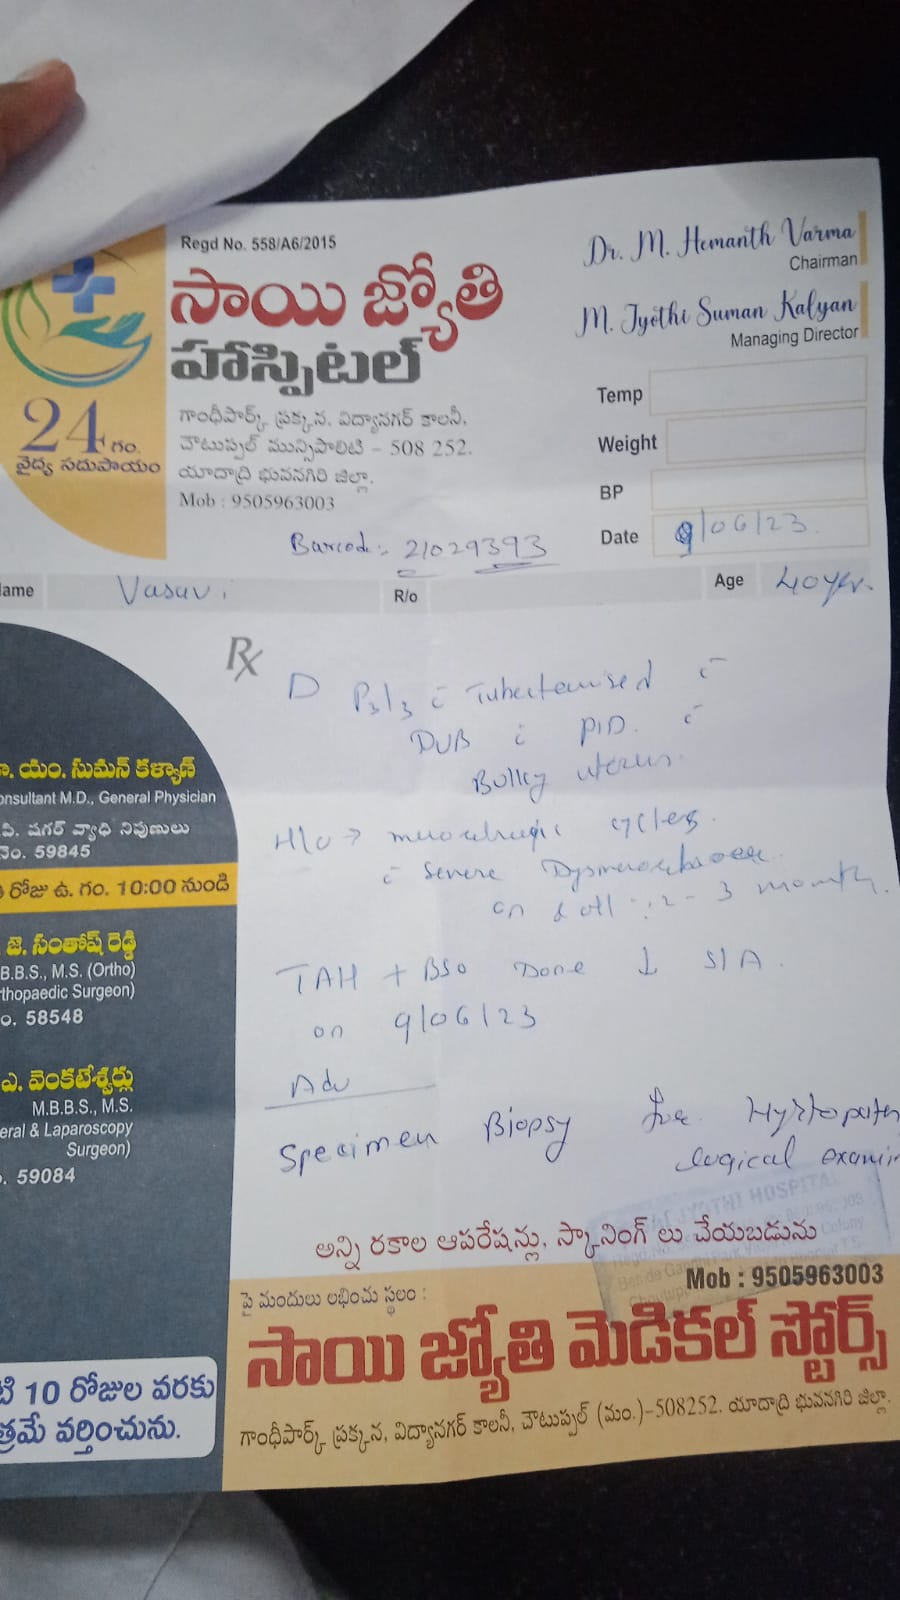 Regd No. 558/A6/2015
సాయి జ్యోతి
హాస్పిటల్
24 గం.
వైద్య సదుపాయం
గాంధీపార్క్ ప్రక్కన, విద్యానగర్ కాలనీ,
చౌటుప్పల్ మున్సిపాలిటి - 508 252.
యాదాద్రి భువనగిరి జిల్లా.
Mob : 9505963003
Dr. M. Hemanth Varma
Chairman
M. Jyothi Suman Kalyan
Managing Director
Temp
Weight
BP
Date 9/06/23
Barcode:- 21029393
Name Vasavi R/o Age 40yr.
Rx
D P3L3 c̄ Tubectomised c̄
DUB c̄ PID. c̄
Bulky uterus.
H/o → cycles
c̄ severe
on & off 2-3 month.
TAH + BSO Done ↓ S/A.
on 9/06/23
Adv
Specimen Biopsy for
logical
యం. సుమన్ కళ్యాణ్
onsultant M.D., General Physician
షుగర్ వ్యాధి నిపుణులు
నెం. 59845
రోజు ఉ. గం. 10:00 నుండి
జె. సంతోష్ రెడ్డి
B.B.S., M.S. (Ortho)
thopaedic Surgeon)
o. 58548
ఎ. వెంకటేశ్వర్లు
M.B.B.S., M.S.
eral & Laparoscopy
Surgeon)
. 59084
JYOTHI HOSPITAL
అన్ని రకాల ఆపరేషన్లు, స్కానింగ్ లు చేయబడును
Mob : 9505963003
పై మందులు లభించు స్థలం :
సాయి జ్యోతి మెడికల్ స్టోర్స్
గాంధీపార్క్ ప్రక్కన, విద్యానగర్ కాలనీ, చౌటుప్పల్ (మం.)-508252. యాదాద్రి భువనగిరి జిల్లా.
10 రోజుల వరకు
త్రమే వర్తించును.